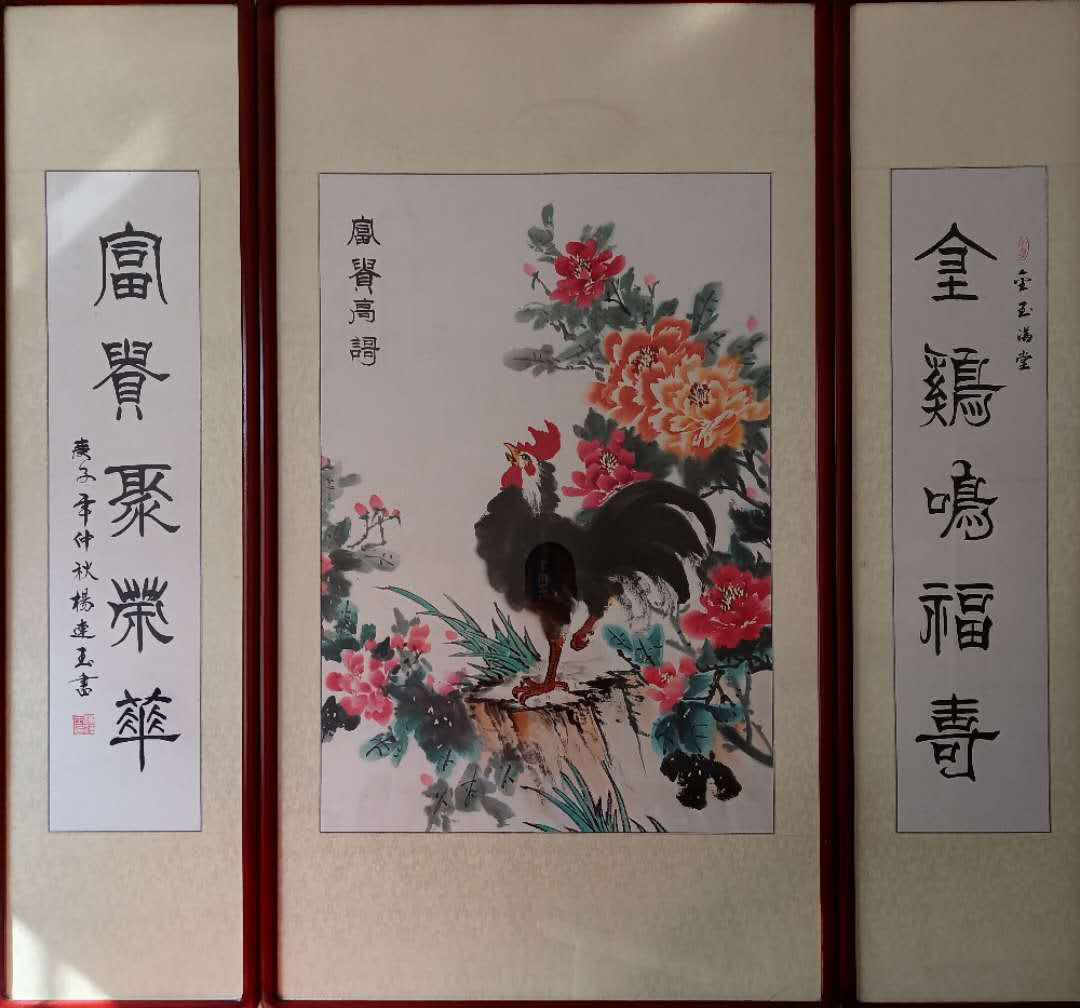 金玉满堂
金鷄鳴福壽
富貴高謌
富貴聚榮華
庚子年仲秋楊玉書